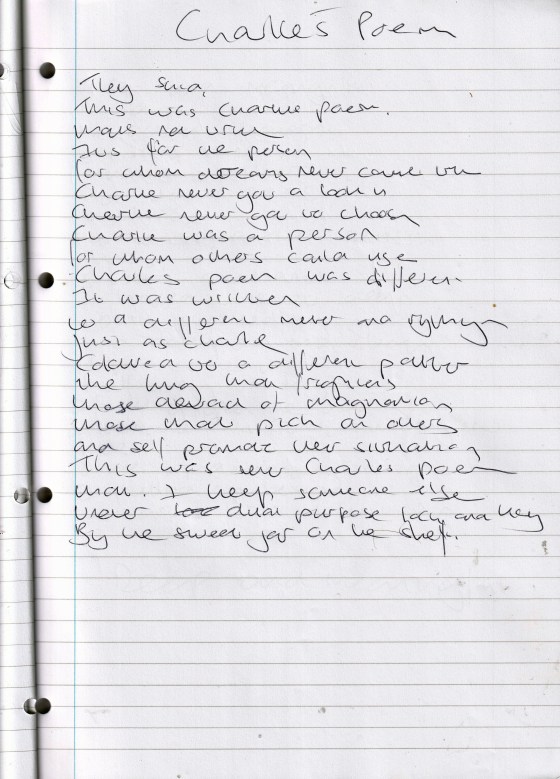 Charlie's Poem
They said,
This was Charlie poem.
that's not true
It's for the person
for whom dreams never came true
Charlie never got a look in
Charlie never got to choose
Charlie was a person
for whom others could use
Charlies poem was different
It was written
to a different meter and rythym
just as Charlie
danced to a different patter
the thing that frightens
those devoid of imagination
those that pick on others
and self promote their situation
This was never Charlies poem
that I keep someone else
under dual purpose lock and key
By the sweet jar on the shelf.